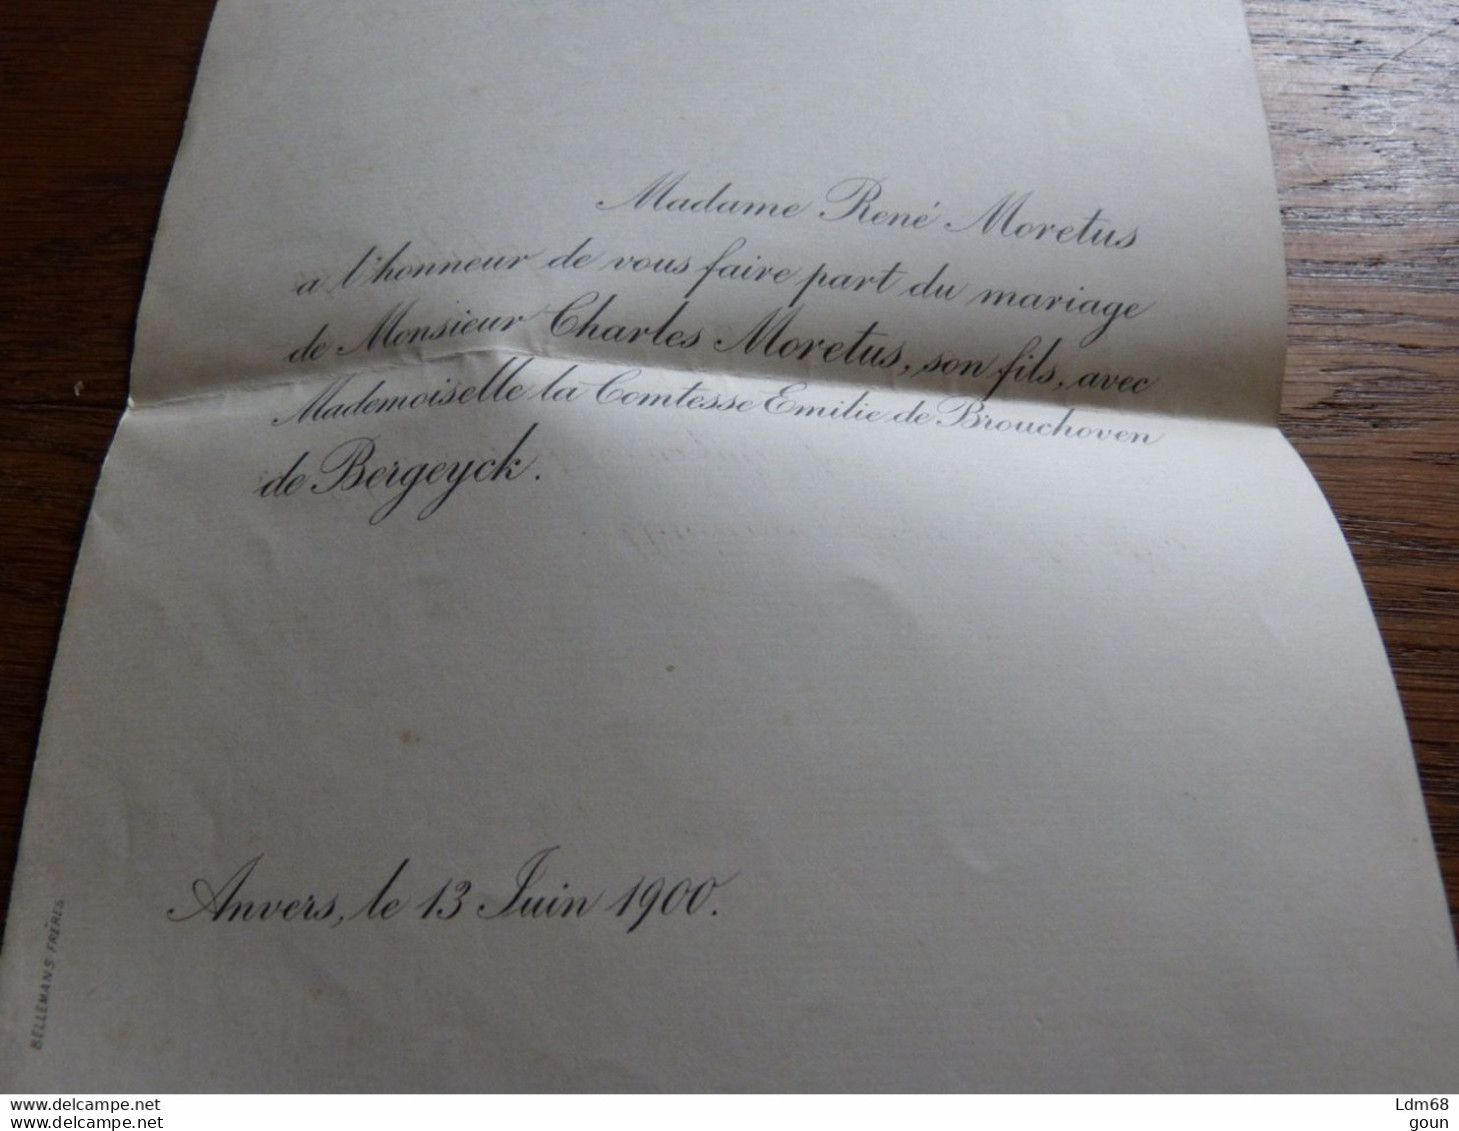 Madame René Moretus
a l'honneur de vous faire part du mariage
de Monsieur Charles Moretus, son fils, avec
Mademoiselle la Comtesse Emilie de Brouchoven
de Bergeyck.
Anvers, le 13 Juin 1900.
BELLEMANS FRÈRES
www.delcampe.net
www.delcampe.net
Ldm68
goun